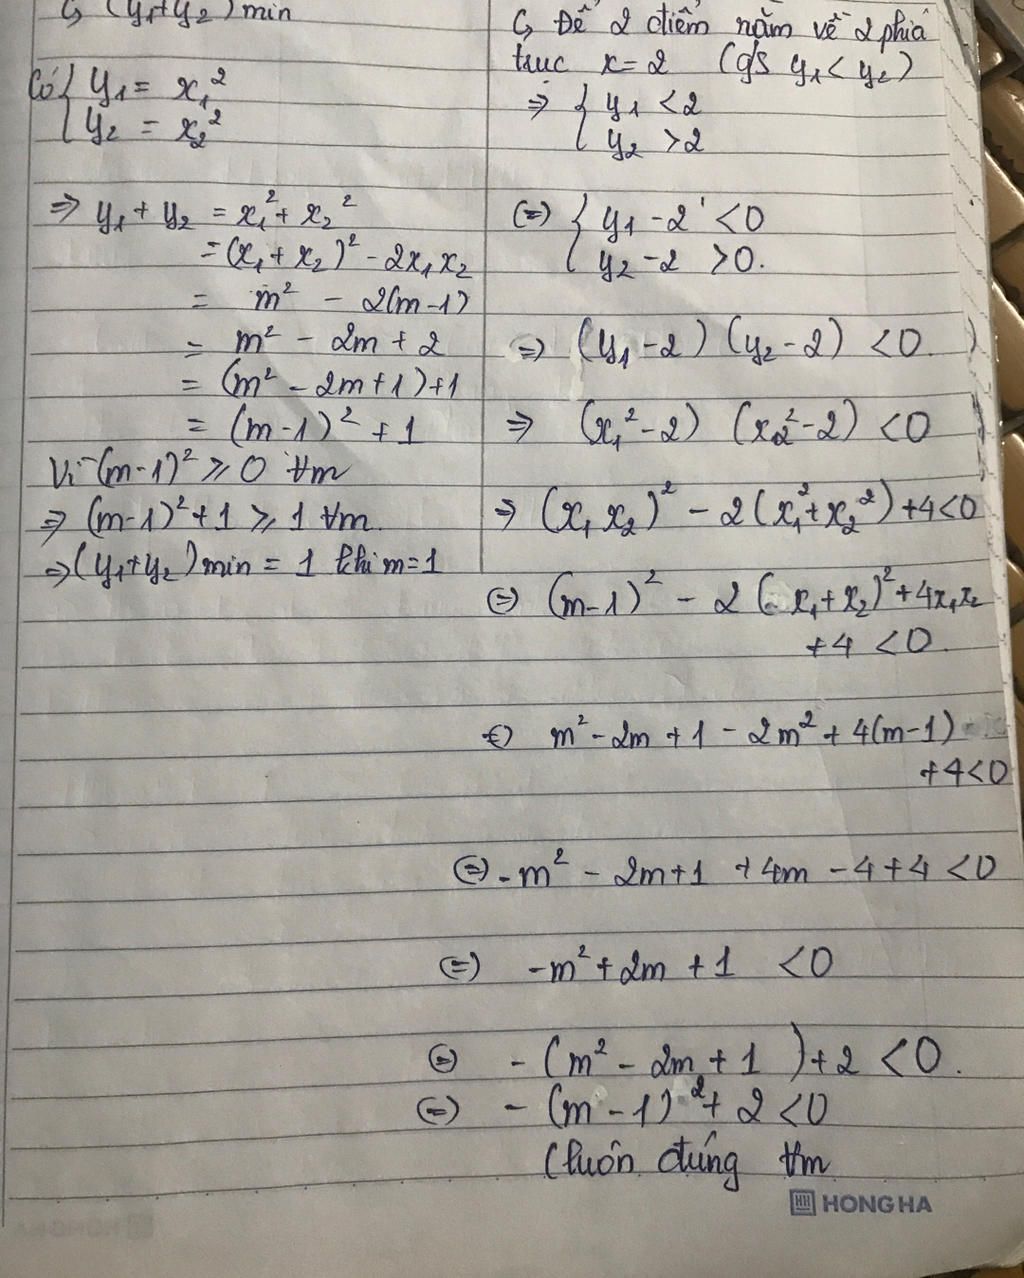 ↳ (y₁+y₂) min
Có { y₁ = x₁²
y₂ = x₂²
⇒ y₁ + y₂ = x₁² + x₂²
= (x₁ + x₂)² - 2x₁x₂
= m² - 2(m-1)
= m² - 2m + 2
= (m² - 2m+1)+1
= (m-1)² + 1
Vì (m-1)² ≥ 0 ∀m
⇒ (m-1)² + 1 ≥ 1 ∀m.
⇒ (y₁+y₂) min = 1 khi m=1
↳ Để 2 điểm nằm về 2 phía
trục x = 2 (gs y₁ < y₂)
⇒ { y₁ < 2
y₂ > 2
(=) { y₁ - 2 < 0
y₂ - 2 > 0.
⇒ (y₁ - 2) (y₂ - 2) < 0.
⇒ (x₁² - 2) (x₂² - 2) < 0
⇒ (x₁ x₂)² - 2(x₁² + x₂²) + 4 < 0
(=) (m-1)² - 2 (x₁ + x₂)² + 4x₁x₂
+4 < 0.
(=) m² - 2m + 1 - 2m² + 4(m-1)
+4 < 0
(=) - m² - 2m + 1 + 4m - 4 + 4 < 0
(=) -m² + 2m + 1 < 0
(=) - (m² - 2m + 1) + 2 < 0.
(=) - (m - 1)² + 2 < 0
(luôn đúng ∀m
HONG HA